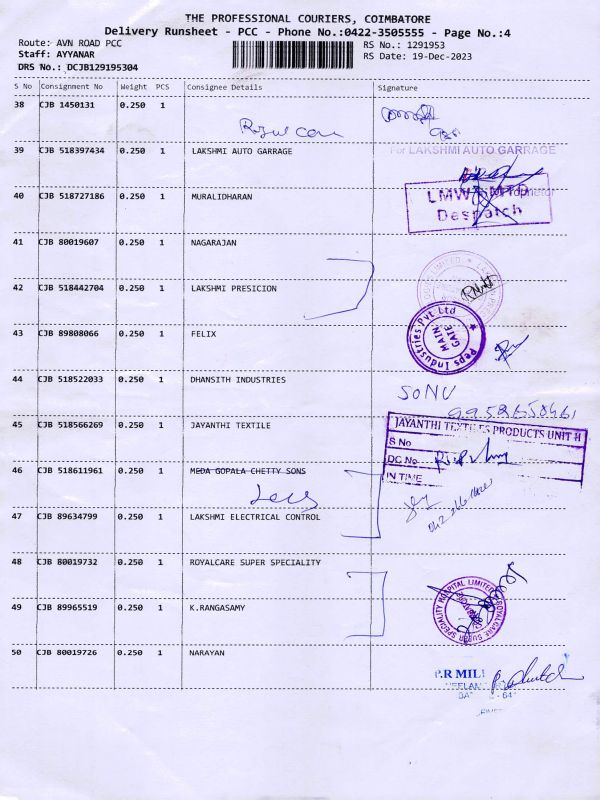 THE PROFESSIONAL COURIERS, COIMBATORE
Delivery Runsheet - PCC - Phone No.:0422-3505555 - Page No.:4
Route: AVN ROAD PCC
RS No.: 1291953
Staff: AYYANAR
RS Date: 19-Dec-2023
DRS No.: DCJB129195304
S No Consignment No Weight PCS Consignee Details Signature
38 CJB 1450131 0.250 1
39 CJB 518397434 0.250 1 LAKSHMI AUTO GARRAGE
For LAKSHMI AUTO GARRAGE
Proprietor
40 CJB 518727186 0.250 1 MURALIDHARAN
LMW MTD
Despatch
41 CJB 80019607 0.250 1 NAGARAJAN
42 CJB 518442704 0.250 1 LAKSHMI PRESICION
43 CJB 89808066 0.250 1 FELIX
Peps Industries Pvt Ltd
MAIN GATE
44 CJB 518522033 0.250 1 DHANSITH INDUSTRIES
SONU
45 CJB 518566269 0.250 1 JAYANTHI TEXTILE
JAYANTHI TEXTILES PRODUCTS UNIT II
S No
DC No
IN TIME
46 CJB 518611961 0.250 1 MEDA GOPALA CHETTY SONS
47 CJB 89634799 0.250 1 LAKSHMI ELECTRICAL CONTROL
48 CJB 80019732 0.250 1 ROYALCARE SUPER SPECIALITY
ROYALCARE SUPER SPECIALITY HOSPITAL LIMITED
49 CJB 89965519 0.250 1 K.RANGASAMY
50 CJB 80019726 0.250 1 NARAYAN
P.R MILL